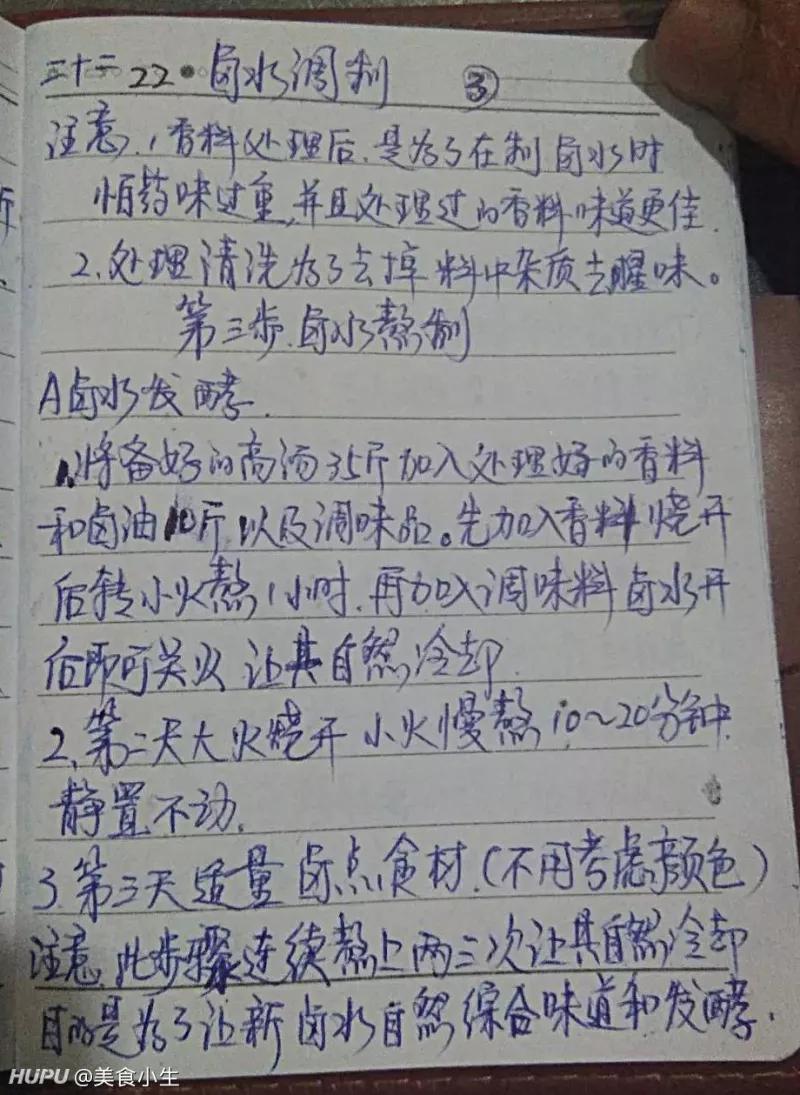 二十二 22·卤水调制 ③
注意、1香料处理后.是为了在制卤水时
怕药味过重,并且处理过的香料味道更佳.
2、处理清洗为了去掉料中杂质去腥味。
第三步.卤水熬制
A卤水发酵.
1、将备好的高汤35斤加入处理好的香料
和卤油10斤以及调味品。先加入香料烧开
后转小火熬1小时.再加入调味料卤水开
后即可关火让其自然冷却.
2、第二天大火烧开小火慢熬10~20分钟.
静置不动.
3.第三天适量卤点食材.(不用考虑颜色)
注意.此步骤连续熬上两三次让其自然冷却
目的是为了让新卤水自然综合味道和发酵.
HUPU @美食小生